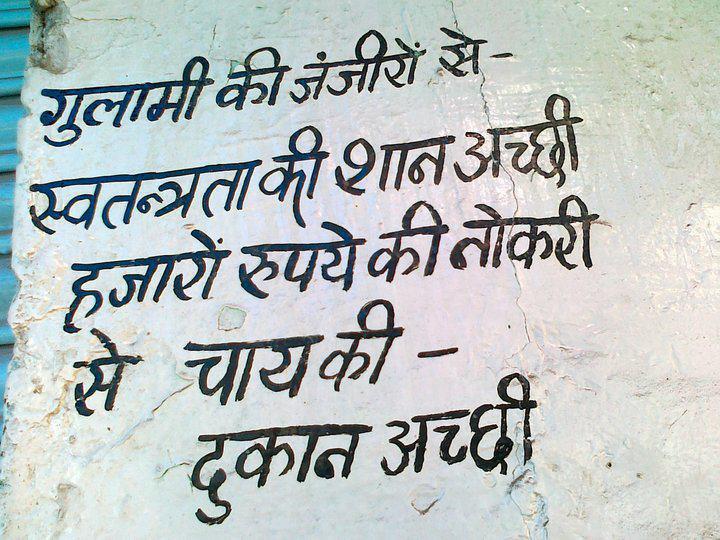 गुलामी की जंजीरों से-
स्वतन्त्रता की शान अच्छी
हजारों रुपये की नोकरी
से चाय की -
दुकान अच्छी